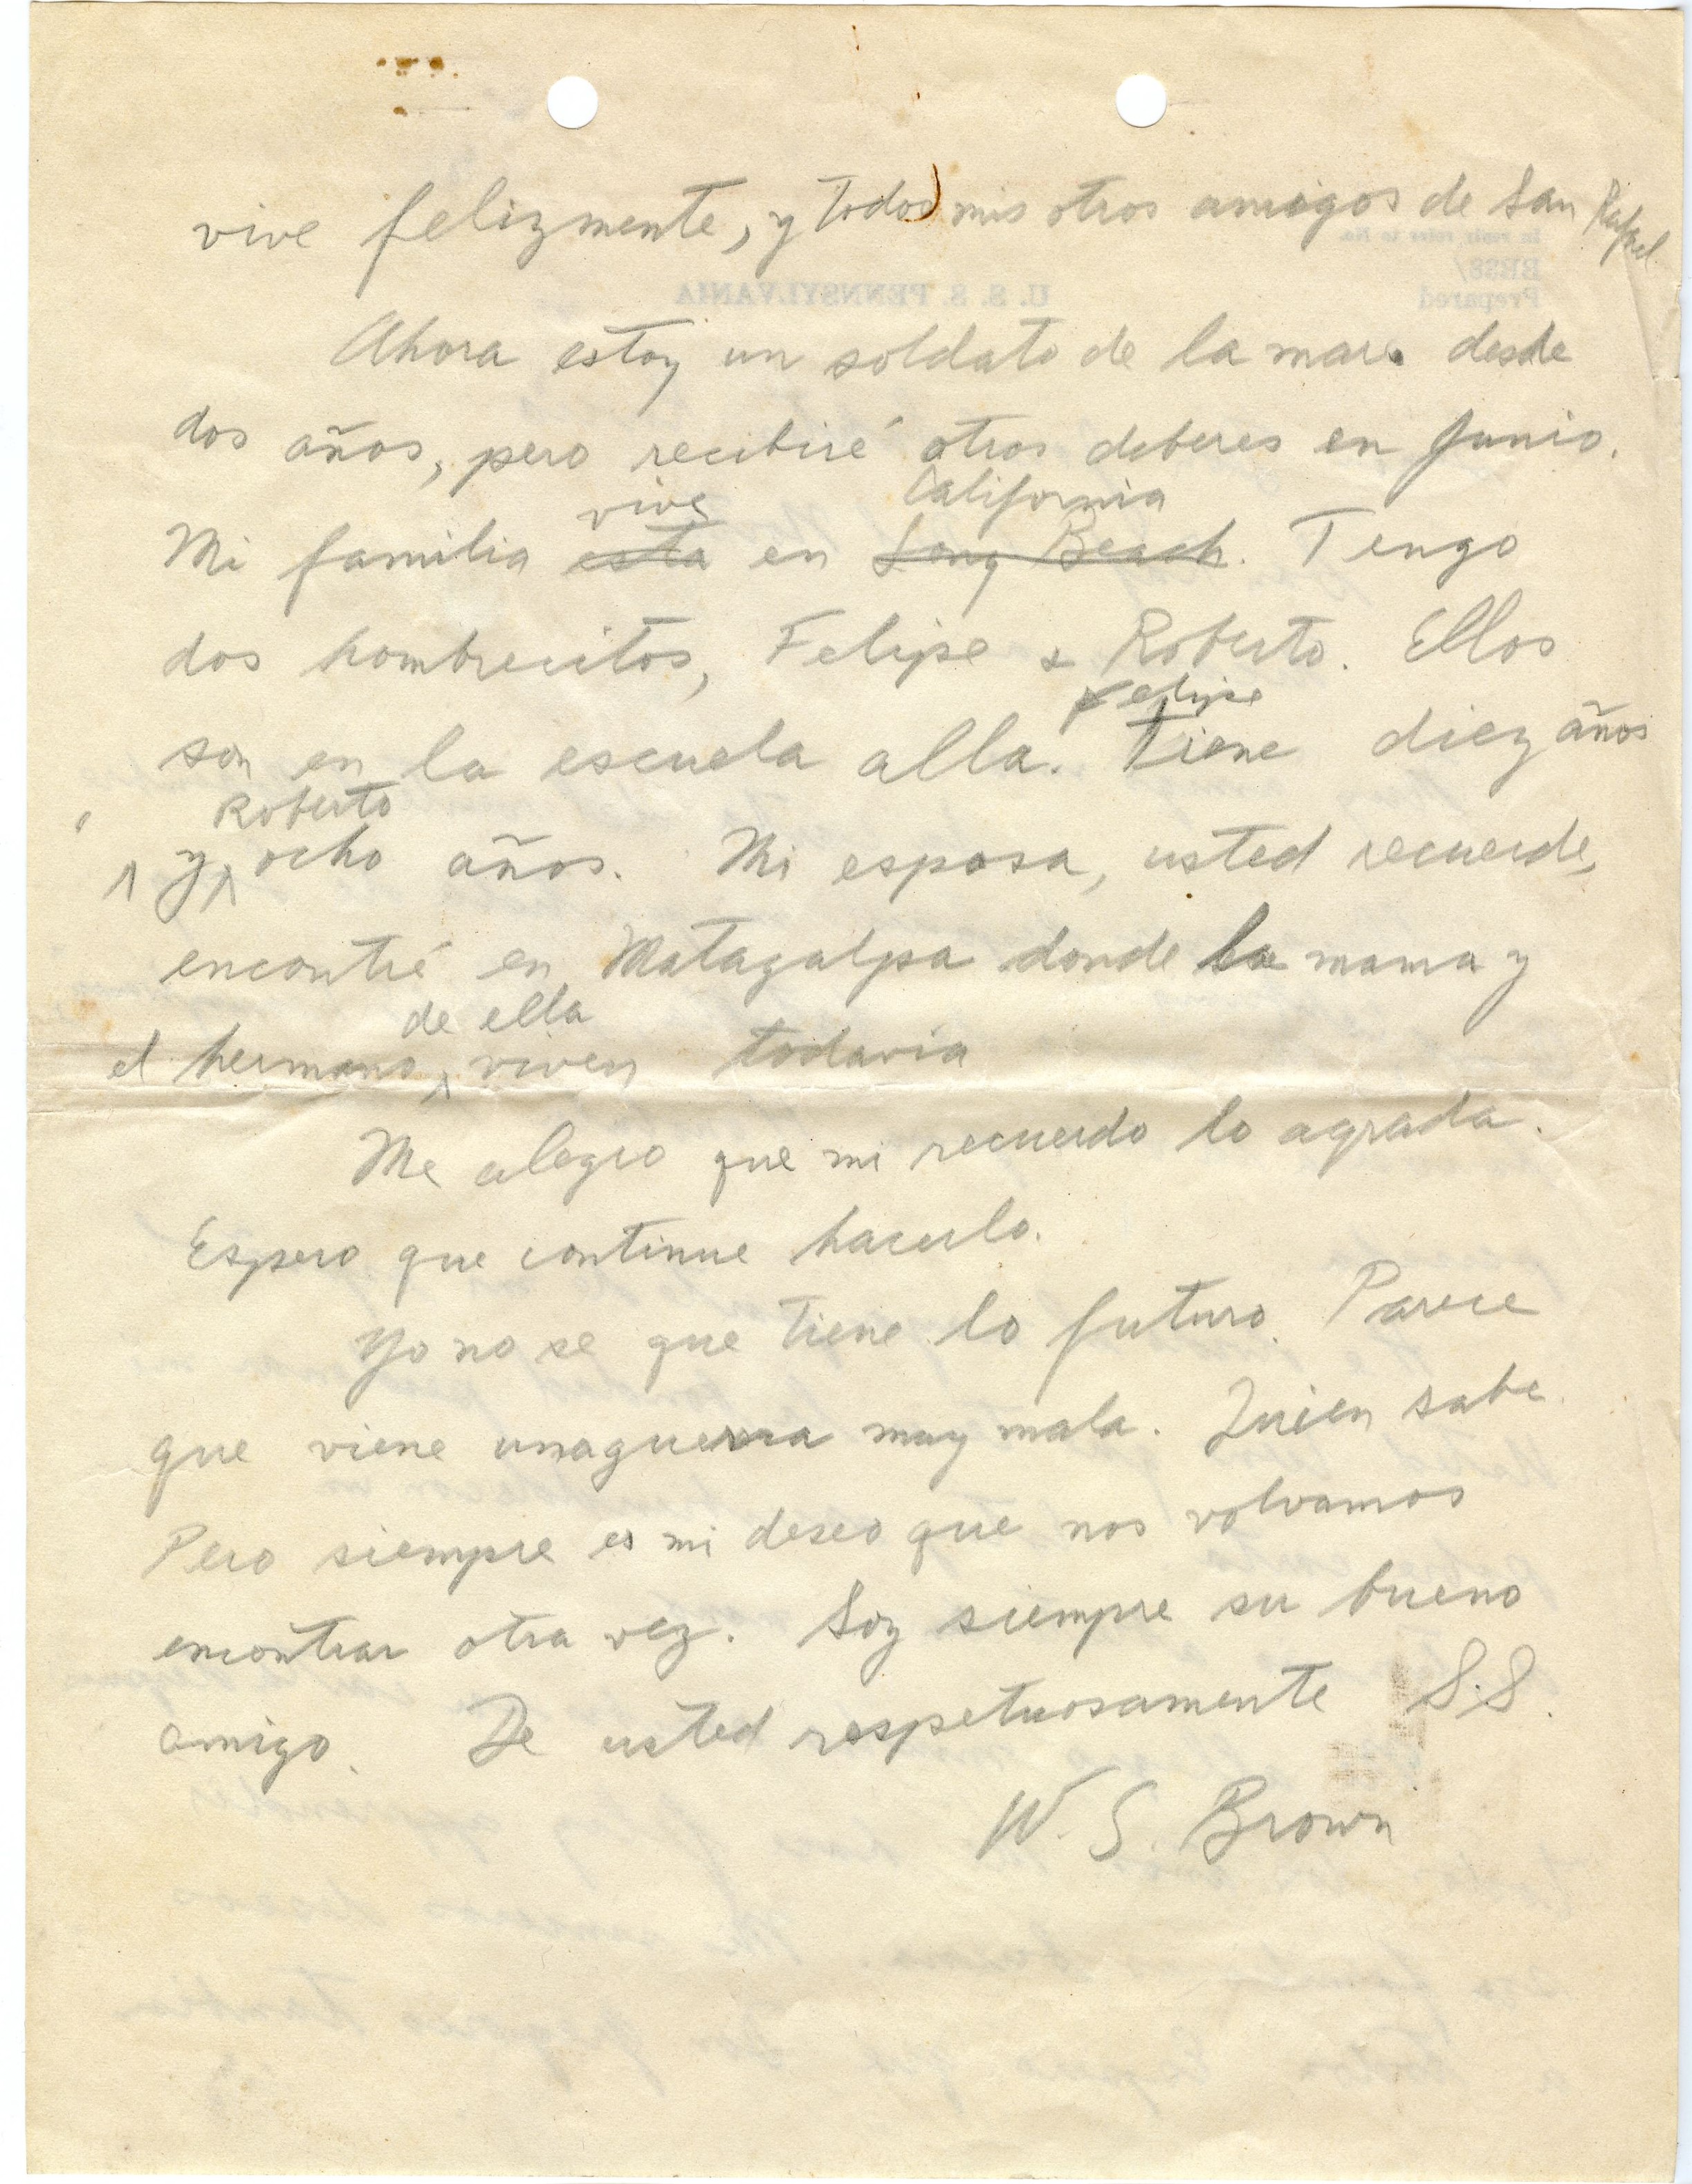 vive felizmente, y todos mis otros amigos de San Rafael
Ahora estoy un soldato de la mare desde
dos años, pero recibiré otros deberes en Junio.
vive California
Mi familia esta en Long Beach. Tengo
dos hombrecitos, Felipe & Roberto. Ellos
Felipe
son en la escuela alla. Tiene diez años
Roberto
y ocho años. Mi esposa, usted recuerde,
encontré en Matagalpa donde la mama y
de ella
el hermano viven todavia
Me alegro que mi recuerdo lo agrada.
Espero que continue hacerlo.
Yo no se que tiene lo futuro. Parece
que viene una guerra muy mala. Quien sabe
Pero siempre es mi deseo que nos volvamos
encontrar otra vez. Soy siempre su bueno
amigo. De usted respetuosamente S.S.
W. S. Brown
In reply refer to No.
BB38/
Prepared
U. S. S. PENNSYLVANIA